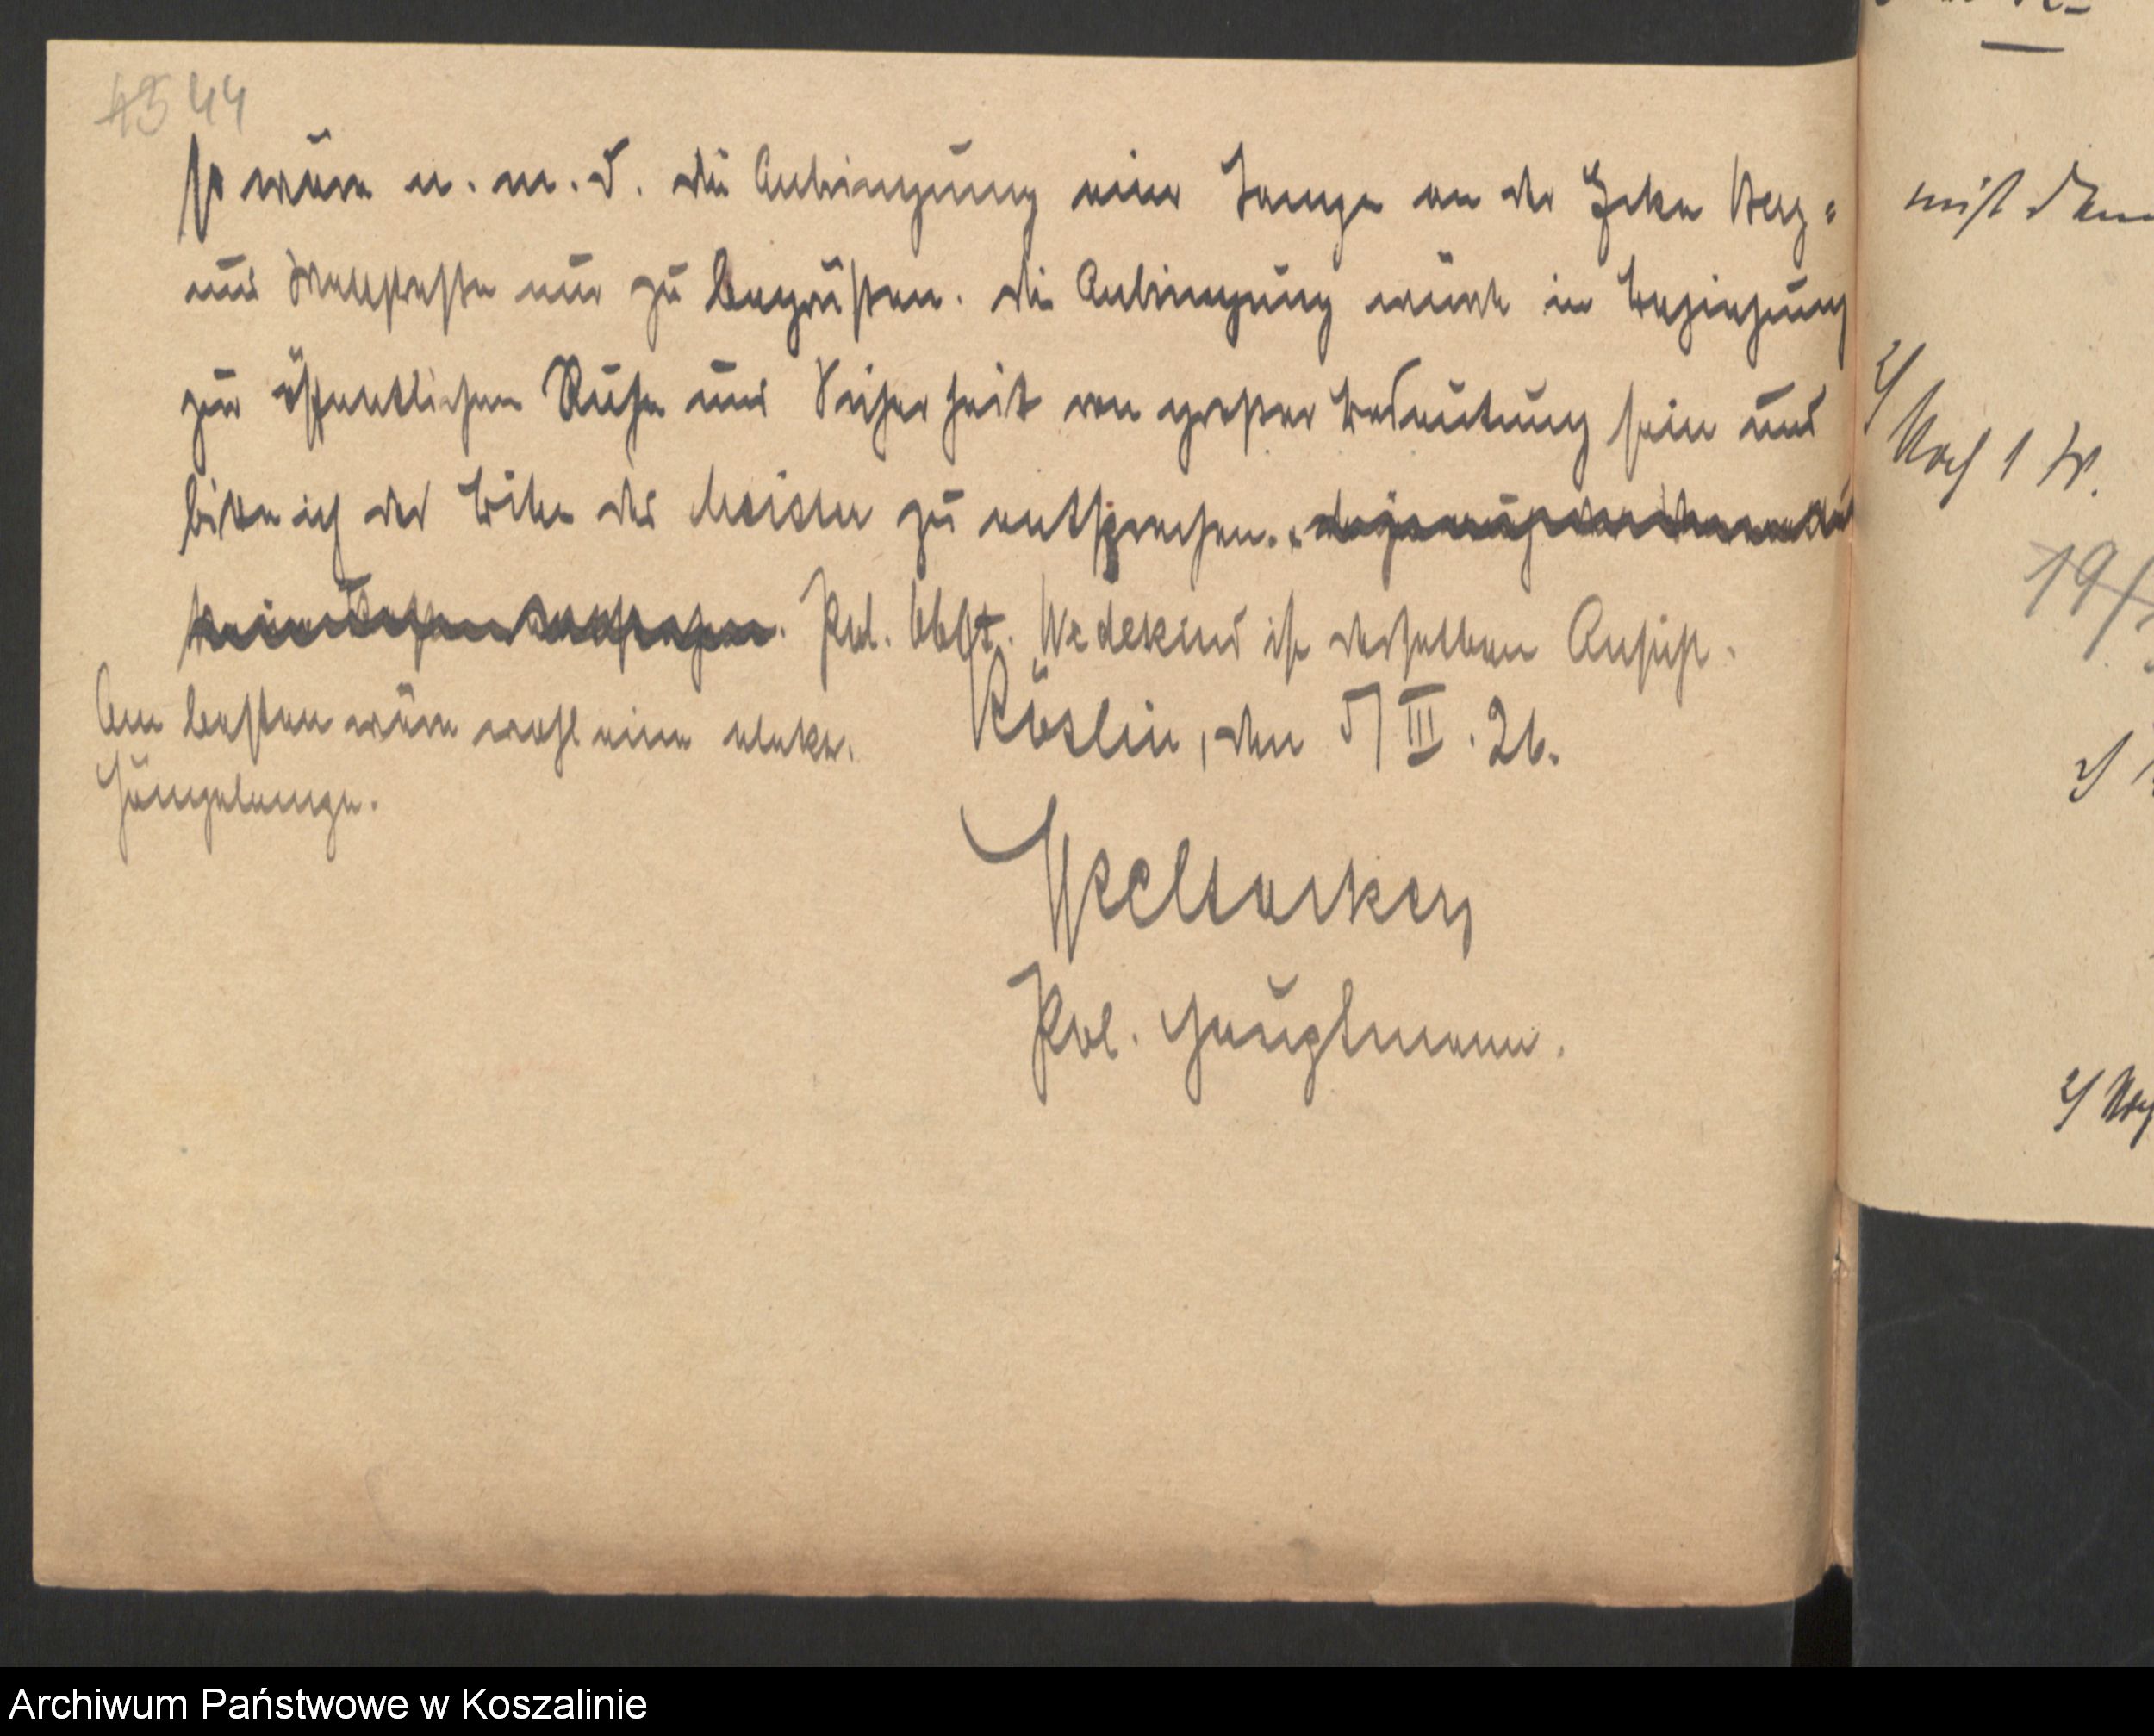 45 44
so wäre u. m. E. die Anbringung einer Lampe an der Ecke Berg=
und Wallstraße nur zu begrüßen. Die Anbringung würde in Beziehung
zur öffentlichen Ruhe und Sicherheit von großer Bedeutung sein und
bitte ich der Bitte des zu entsprechen.
Pol. Obltt. Wedekind ist derselben Ansicht.
Am besten wäre wohl eine elektr.
Hängelampe.
Köslin, den 5/III.26.
Pol. Hauptmann.
mit dem
2/
Nach 1 W.
19/
2/
2/ Nach
Archiwum Państwowe w Koszalinie